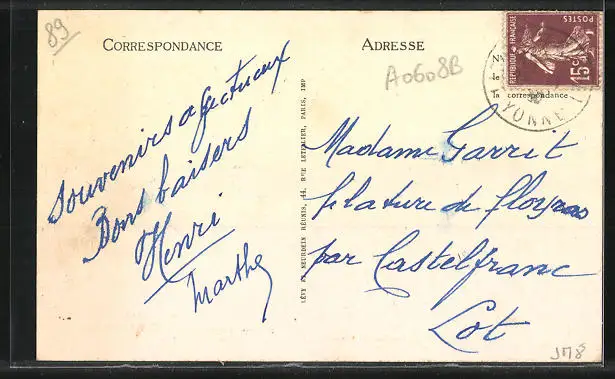 89
CORRESPONDANCE
ADRESSE
A0608B
RÉPUBLIQUE FRANÇAISE
POSTES
15c
la correspondance
YONNE
Souvenirs afectueux
Bons baisers
Henri
Marthe
LÉVY & NEURDEIN RÉUNIS, 44, RUE LETELLIER, PARIS, IMP
Madame Garrit
filature de
par Castelfranc
Lot
JM8